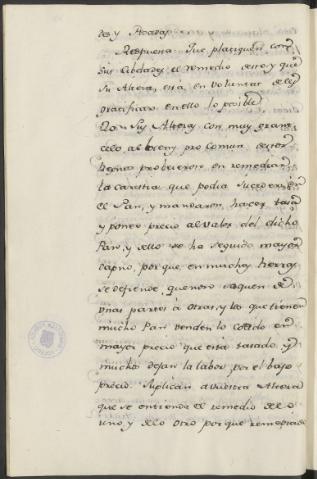 des, y Acavas
Respuesta. Que platiquen con
sus Cibdades el remedio desto y que
Su Alteza, está, en voluntad de les
gratificar en ello lo posible.
Sus Altezas con muy grande
celo al bien y pro Comun destos
Regnos probieron en remediar
la carestia que podia suceder en
el Pan, y mandaron hacer tasa
y poner precio al valor del dicho
Pan, y dello se ha seguido mayor
dapno, porque, en muchas tierras
se defiende, que no se saquen de
unas partes á otras, y los que tienen
mucho Pan venden lo cocido en
mayor precio que está tasado, y
muchos dejan la labor por el bajo
precio. Suplican a vuestra Alteza
que se entienda el remedio de lo
uno, y de lo otro porque remediado